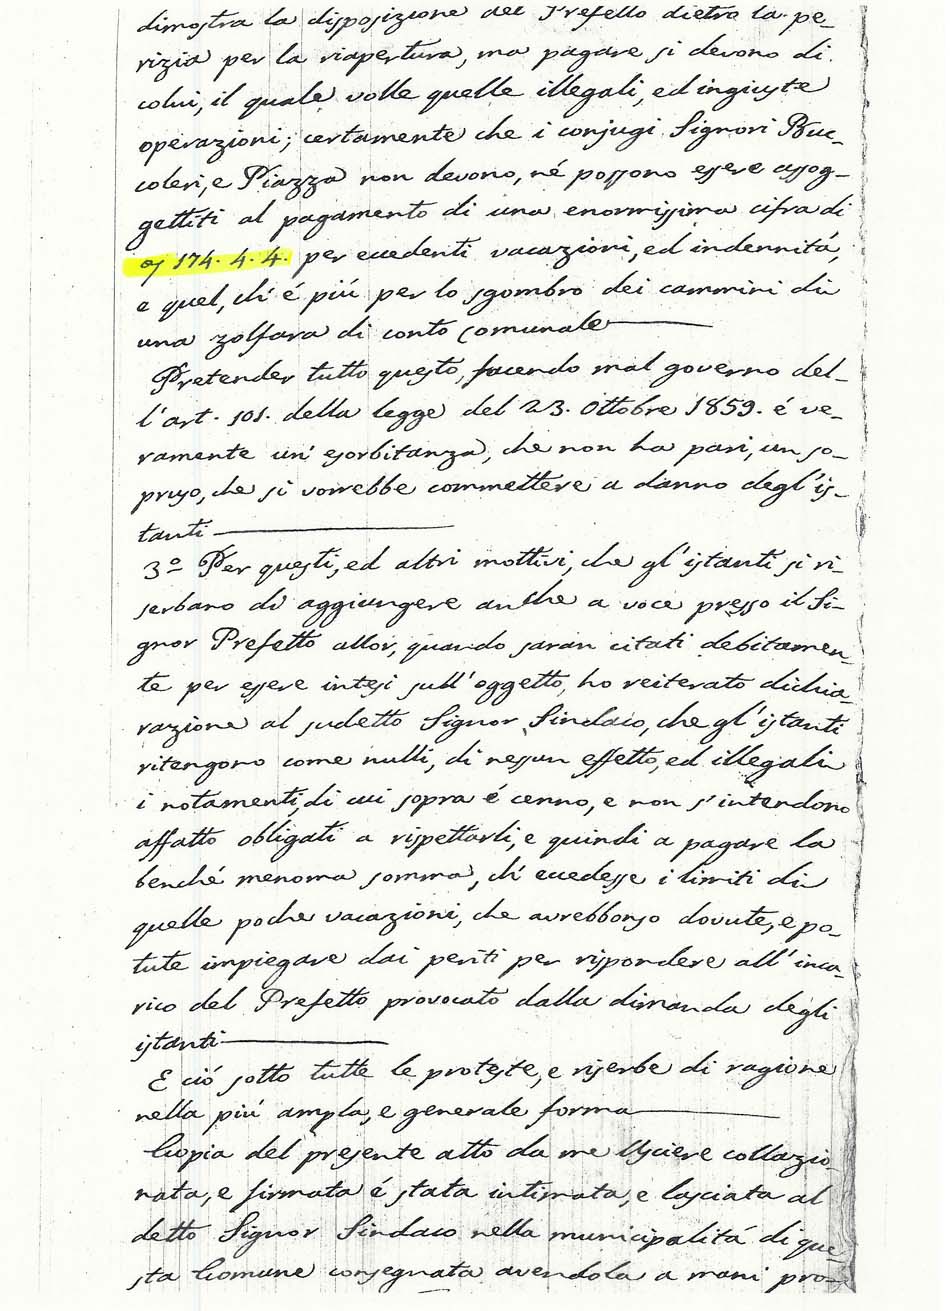 dimostra la disposizione del Prefetto dietro la pe_
rizia per la riapertura, ma pagare si devono di
colui, il quale volle quelle illegali, ed ingiuste
operazioni; certamente che i conjugi Signori Buc_
coleri, e Piazza non devono, né possono essere assog_
gettiti al pagamento di una enormissima cifra di
174. 4. 4. per eccedenti vacazioni, ed indennitá,
e quel, ch' é piú per lo sgombro dei cammini di
una zolfara di conto comunale
Pretender tutto questo, facendo mal governo del_
l'art. 101. della legge del 23. Ottobre 1859. é ve_
ramente un' esorbitanza, che non ha pari, un so_
pruso, che si vorrebbe commettere a danno degl'is_
tanti
3º Per questi, ed altri mottivi, che gl'istanti si ri_
serbano di aggiungere anche a voce presso il Si_
gnor Prefetto allor, quando saran citati debitamen_
te per essere intesi sull'oggetto, ho reiterato dichia_
razione al sudetto Signor Sindaco, che gl'istanti
ritengono come nulli, di nessun effetto, ed illegali
i notamenti, di cui sopra é cenno, e non s'intendono
affatto obligati a rispettarli, e quindi a pagare la
benché menoma somma, ch' eccedesse i limiti di
quelle poche vacazioni, che avrebbonso dovute, e po_
tute impiegare dai periti per rispondere all'inca_
rico del Prefetto provocato dalla dimanda degli
istanti
E ció sotto tutte le proteste, e riserbe di ragione
nella piú ampla, e generale forma
Copia del presente atto da me Usciere collazio_
nata, e firmata é stata intimata, e lasciata al
detto Signor Sindaco nella municipalitá di que_
sta Comune consegnata avendola a mani pro_